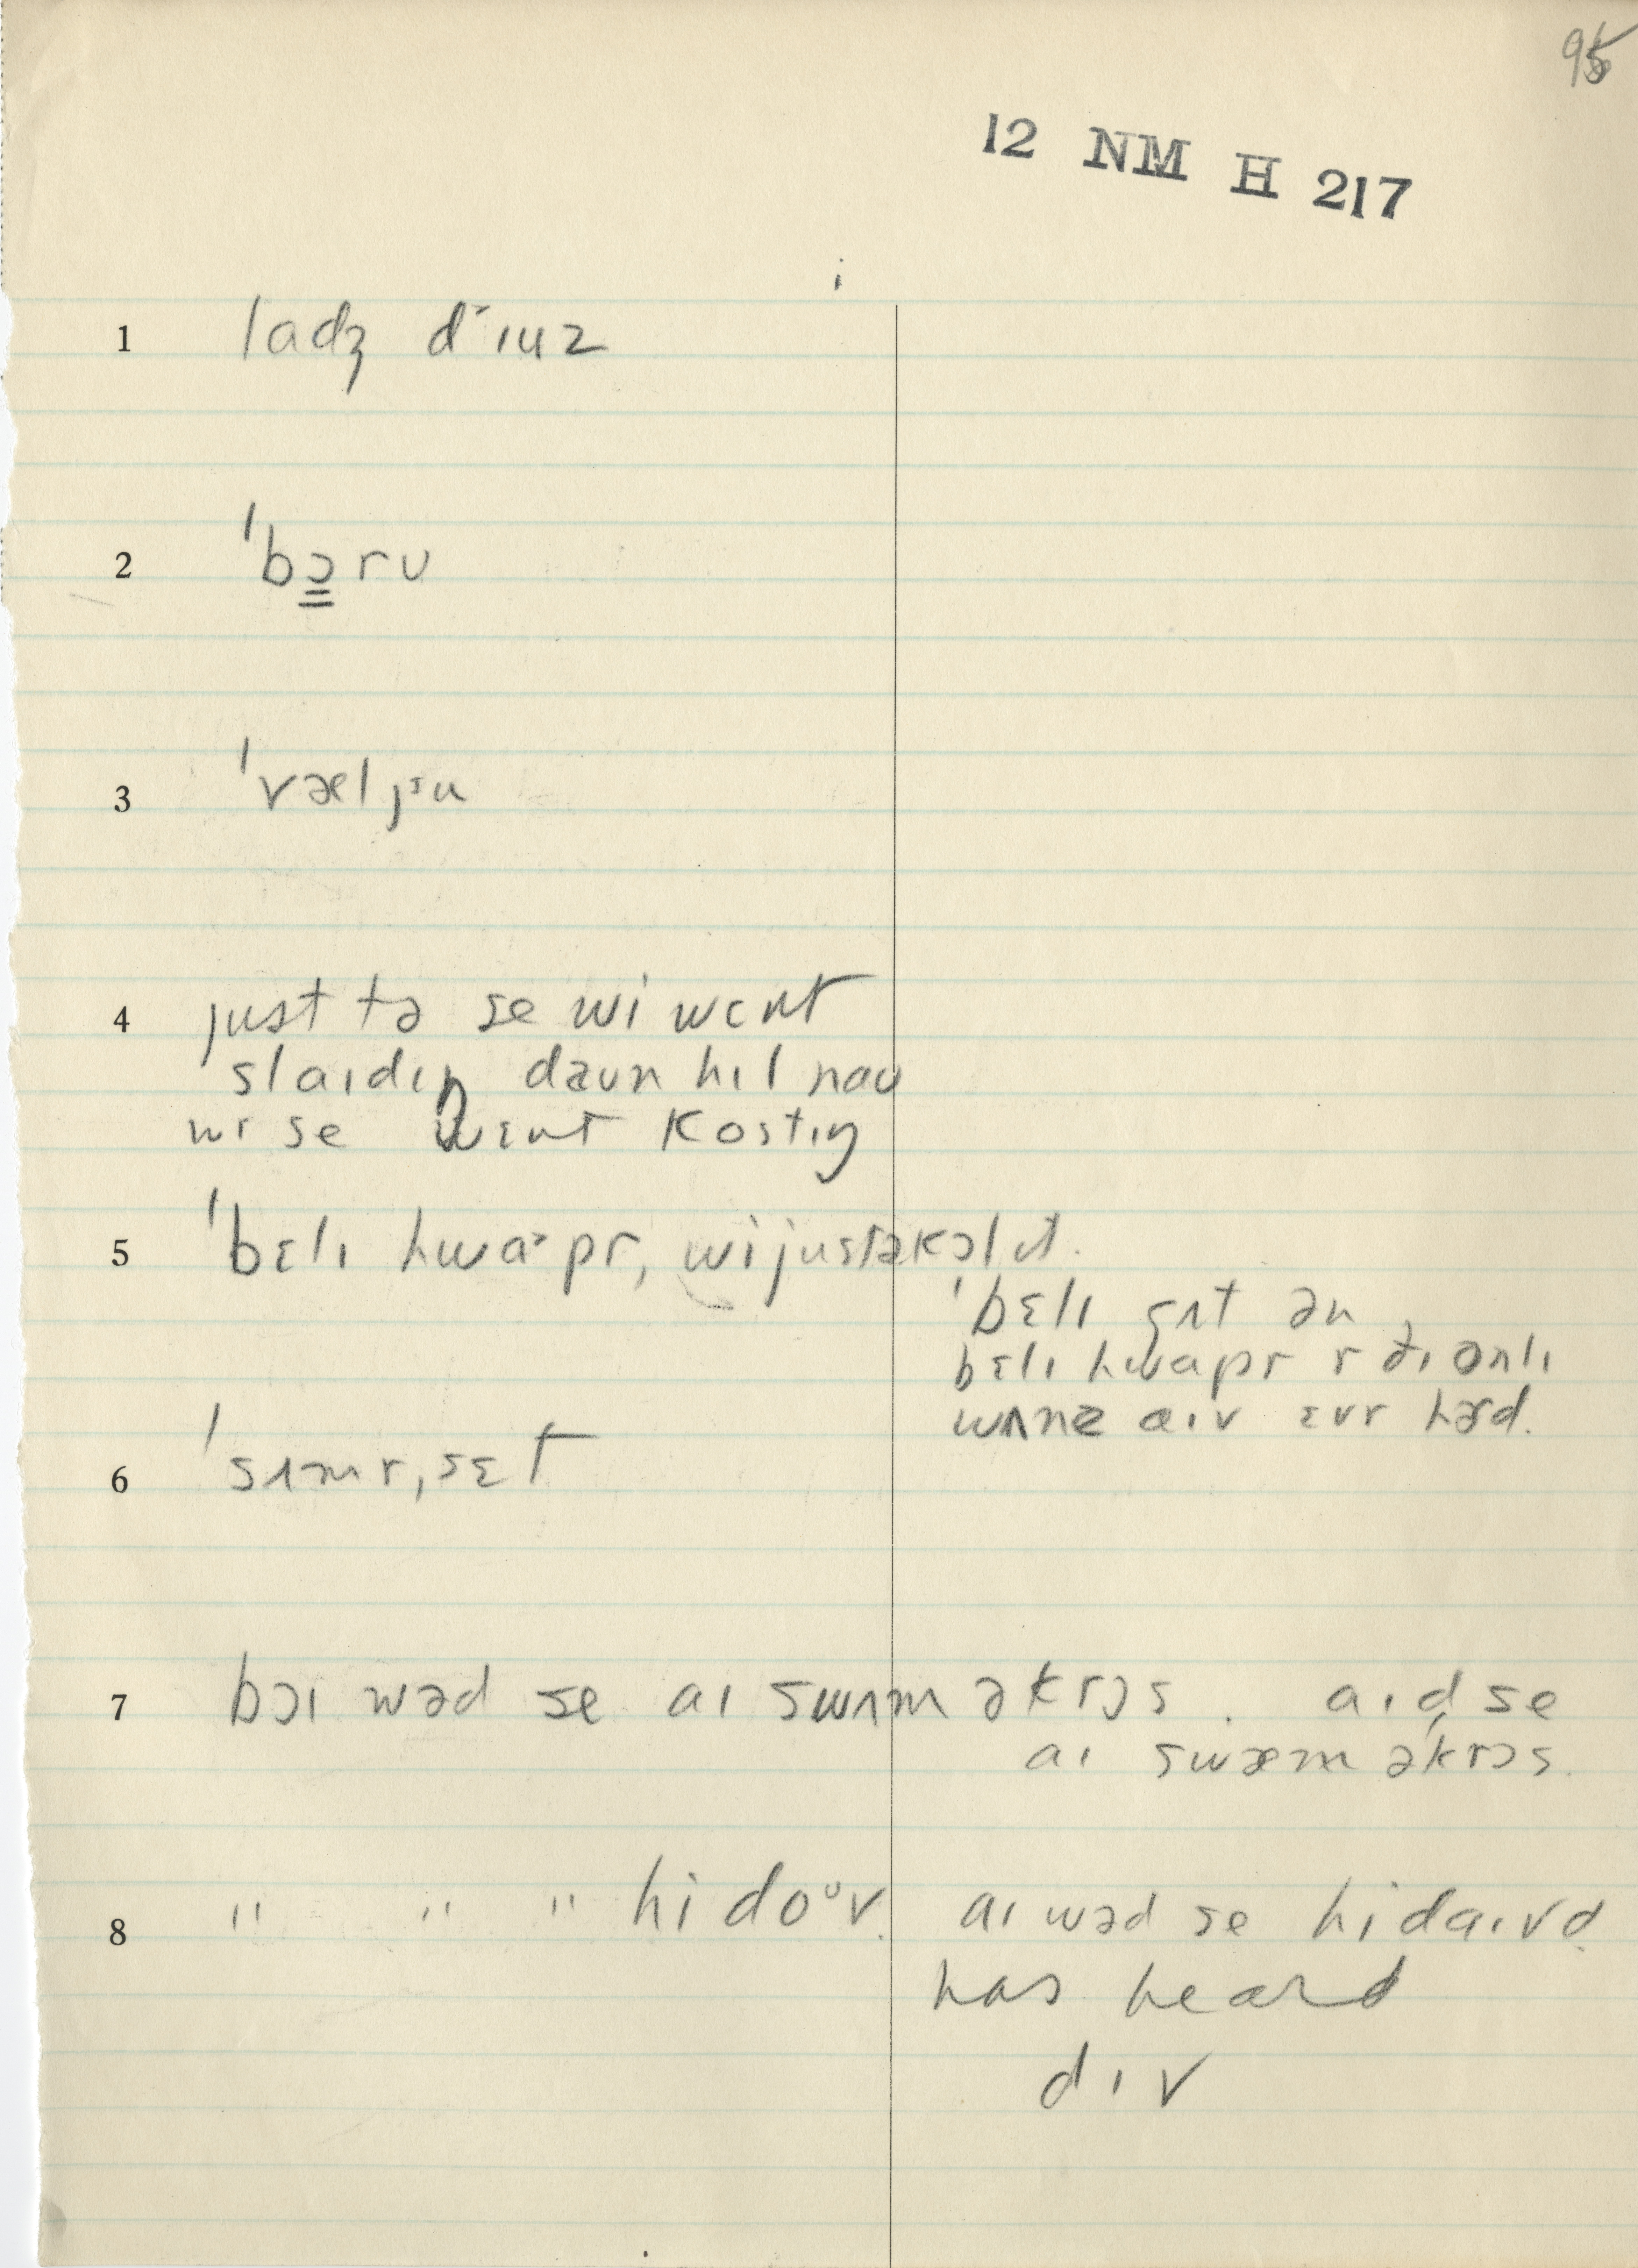 95
12 NM H 217
1 ladʒ d˂ɪuz
2 ˈbɔ̳rʊ
3 ˈvæljᵻu
4 just tə se wi wɛnt
slaɪdɪŋ daʊn hɪl naʊ
wɪ se wɛnt kostɪŋ
5 ˈbɛlɪ hwa˃pr, wi justəkɔl ɪt.
ˈbɛlɪ gʌt ən
bɛlɪ hwapr r ðɪ onlɪ
wʌnz aɪv ɛvr hɝd.
6 ˈsʌmr,sɛt
7 bɔɪ wəd se aɪ swʌm əkrɔs. aɪd se
aɪ swæm əkrɔs.
8 " " " hi doᶷv. aɪ wəd se hi daɪvd.
has heard
dɪv